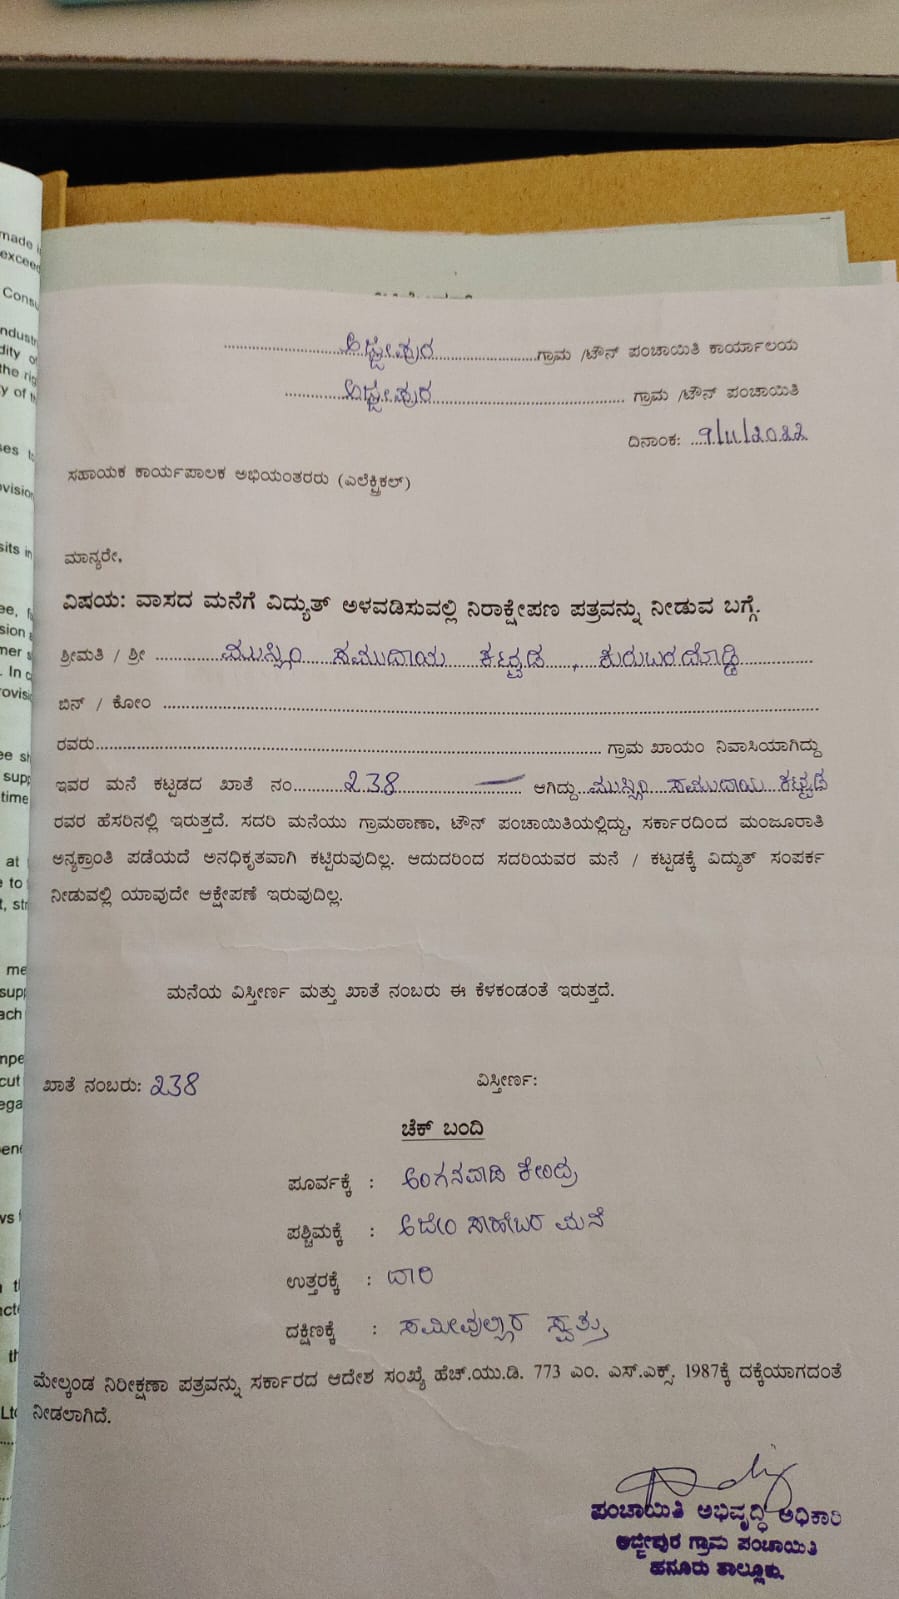 made i
exceed
Consu
ndustr
dity of
the rig
y of t
ses t
vision
sits in
ee, f
sion a
mer s
. In c
rovisi
ee sh
supp
time
at
e to
t, str
me
supp
ach
mpe
cut
ega
ene
ws f
n th
cte
th
Ltd
ಅಜ್ಜೀಪುರ ಗ್ರಾಮ /ಟೌನ್ ಪಂಚಾಯಿತಿ ಕಾರ್ಯಾಲಯ
ಅಜ್ಜೀಪುರ ಗ್ರಾಮ /ಟೌನ್ ಪಂಚಾಯಿತಿ
ದಿನಾಂಕ: 9/11/2022
ಸಹಾಯಕ ಕಾರ್ಯಪಾಲಕ ಅಭಿಯಂತರರು (ಎಲೆಕ್ಟ್ರಿಕಲ್)
ಮಾನ್ಯರೇ,
ವಿಷಯ: ವಾಸದ ಮನೆಗೆ ವಿದ್ಯುತ್ ಅಳವಡಿಸುವಲ್ಲಿ ನಿರಾಕ್ಷೇಪಣ ಪತ್ರವನ್ನು ನೀಡುವ ಬಗ್ಗೆ.
ಶ್ರೀಮತಿ / ಶ್ರೀ ಮುಸ್ಲಿಂ ಸಮುದಾಯ ಕಟ್ಟಡ , ಕುರುಬರದೊಡ್ಡಿ
ಬಿನ್ / ಕೋಂ
ರವರು ಗ್ರಾಮ ಖಾಯಂ ನಿವಾಸಿಯಾಗಿದ್ದು
ಇವರ ಮನೆ ಕಟ್ಟಡದ ಖಾತೆ ನಂ 238 — ಆಗಿದ್ದು ಮುಸ್ಲಿಂ ಸಮುದಾಯ ಕಟ್ಟಡ
ರವರ ಹೆಸರಿನಲ್ಲಿ ಇರುತ್ತದೆ. ಸದರಿ ಮನೆಯು ಗ್ರಾಮಠಾಣಾ, ಟೌನ್ ಪಂಚಾಯಿತಿಯಲ್ಲಿದ್ದು, ಸರ್ಕಾರದಿಂದ ಮಂಜೂರಾತಿ
ಅನ್ಯಕ್ರಾಂತಿ ಪಡೆಯದೆ ಅನಧಿಕೃತವಾಗಿ ಕಟ್ಟಿರುವುದಿಲ್ಲ. ಆದುದರಿಂದ ಸದರಿಯವರ ಮನೆ / ಕಟ್ಟಡಕ್ಕೆ ವಿದ್ಯುತ್ ಸಂಪರ್ಕ
ನೀಡುವಲ್ಲಿ ಯಾವುದೇ ಆಕ್ಷೇಪಣೆ ಇರುವುದಿಲ್ಲ.
ಮನೆಯ ವಿಸ್ತೀರ್ಣ ಮತ್ತು ಖಾತೆ ನಂಬರು ಈ ಕೆಳಕಂಡಂತೆ ಇರುತ್ತದೆ.
ಖಾತೆ ನಂಬರು: 238 ವಿಸ್ತೀರ್ಣ:
ಚೆಕ್ ಬಂದಿ
ಪೂರ್ವಕ್ಕೆ : ಅಂಗನವಾಡಿ ಕೇಂದ್ರ
ಪಶ್ಚಿಮಕ್ಕೆ : ಅಜೀಂ ಸಾಹೇಬರ ಮನೆ
ಉತ್ತರಕ್ಕೆ : ದಾರಿ
ದಕ್ಷಿಣಕ್ಕೆ : ಸಮೀವುಲ್ಲಾರ ಸ್ವತ್ತು
ಮೇಲ್ಕಂಡ ನಿರೀಕ್ಷಣಾ ಪತ್ರವನ್ನು ಸರ್ಕಾರದ ಆದೇಶ ಸಂಖ್ಯೆ ಹೆಚ್.ಯು.ಡಿ. 773 ಎಂ. ಎಸ್.ಎಕ್ಸ್. 1987ಕ್ಕೆ ದಕ್ಕೆಯಾಗದಂತೆ
ನೀಡಲಾಗಿದೆ.
ಪಂಚಾಯಿತಿ ಅಭಿವೃದ್ಧಿ ಅಧಿಕಾರಿ
ಅಜ್ಜೀಪುರ ಗ್ರಾಮ ಪಂಚಾಯಿತಿ
ಹನೂರು ತಾಲ್ಲೂಕು.